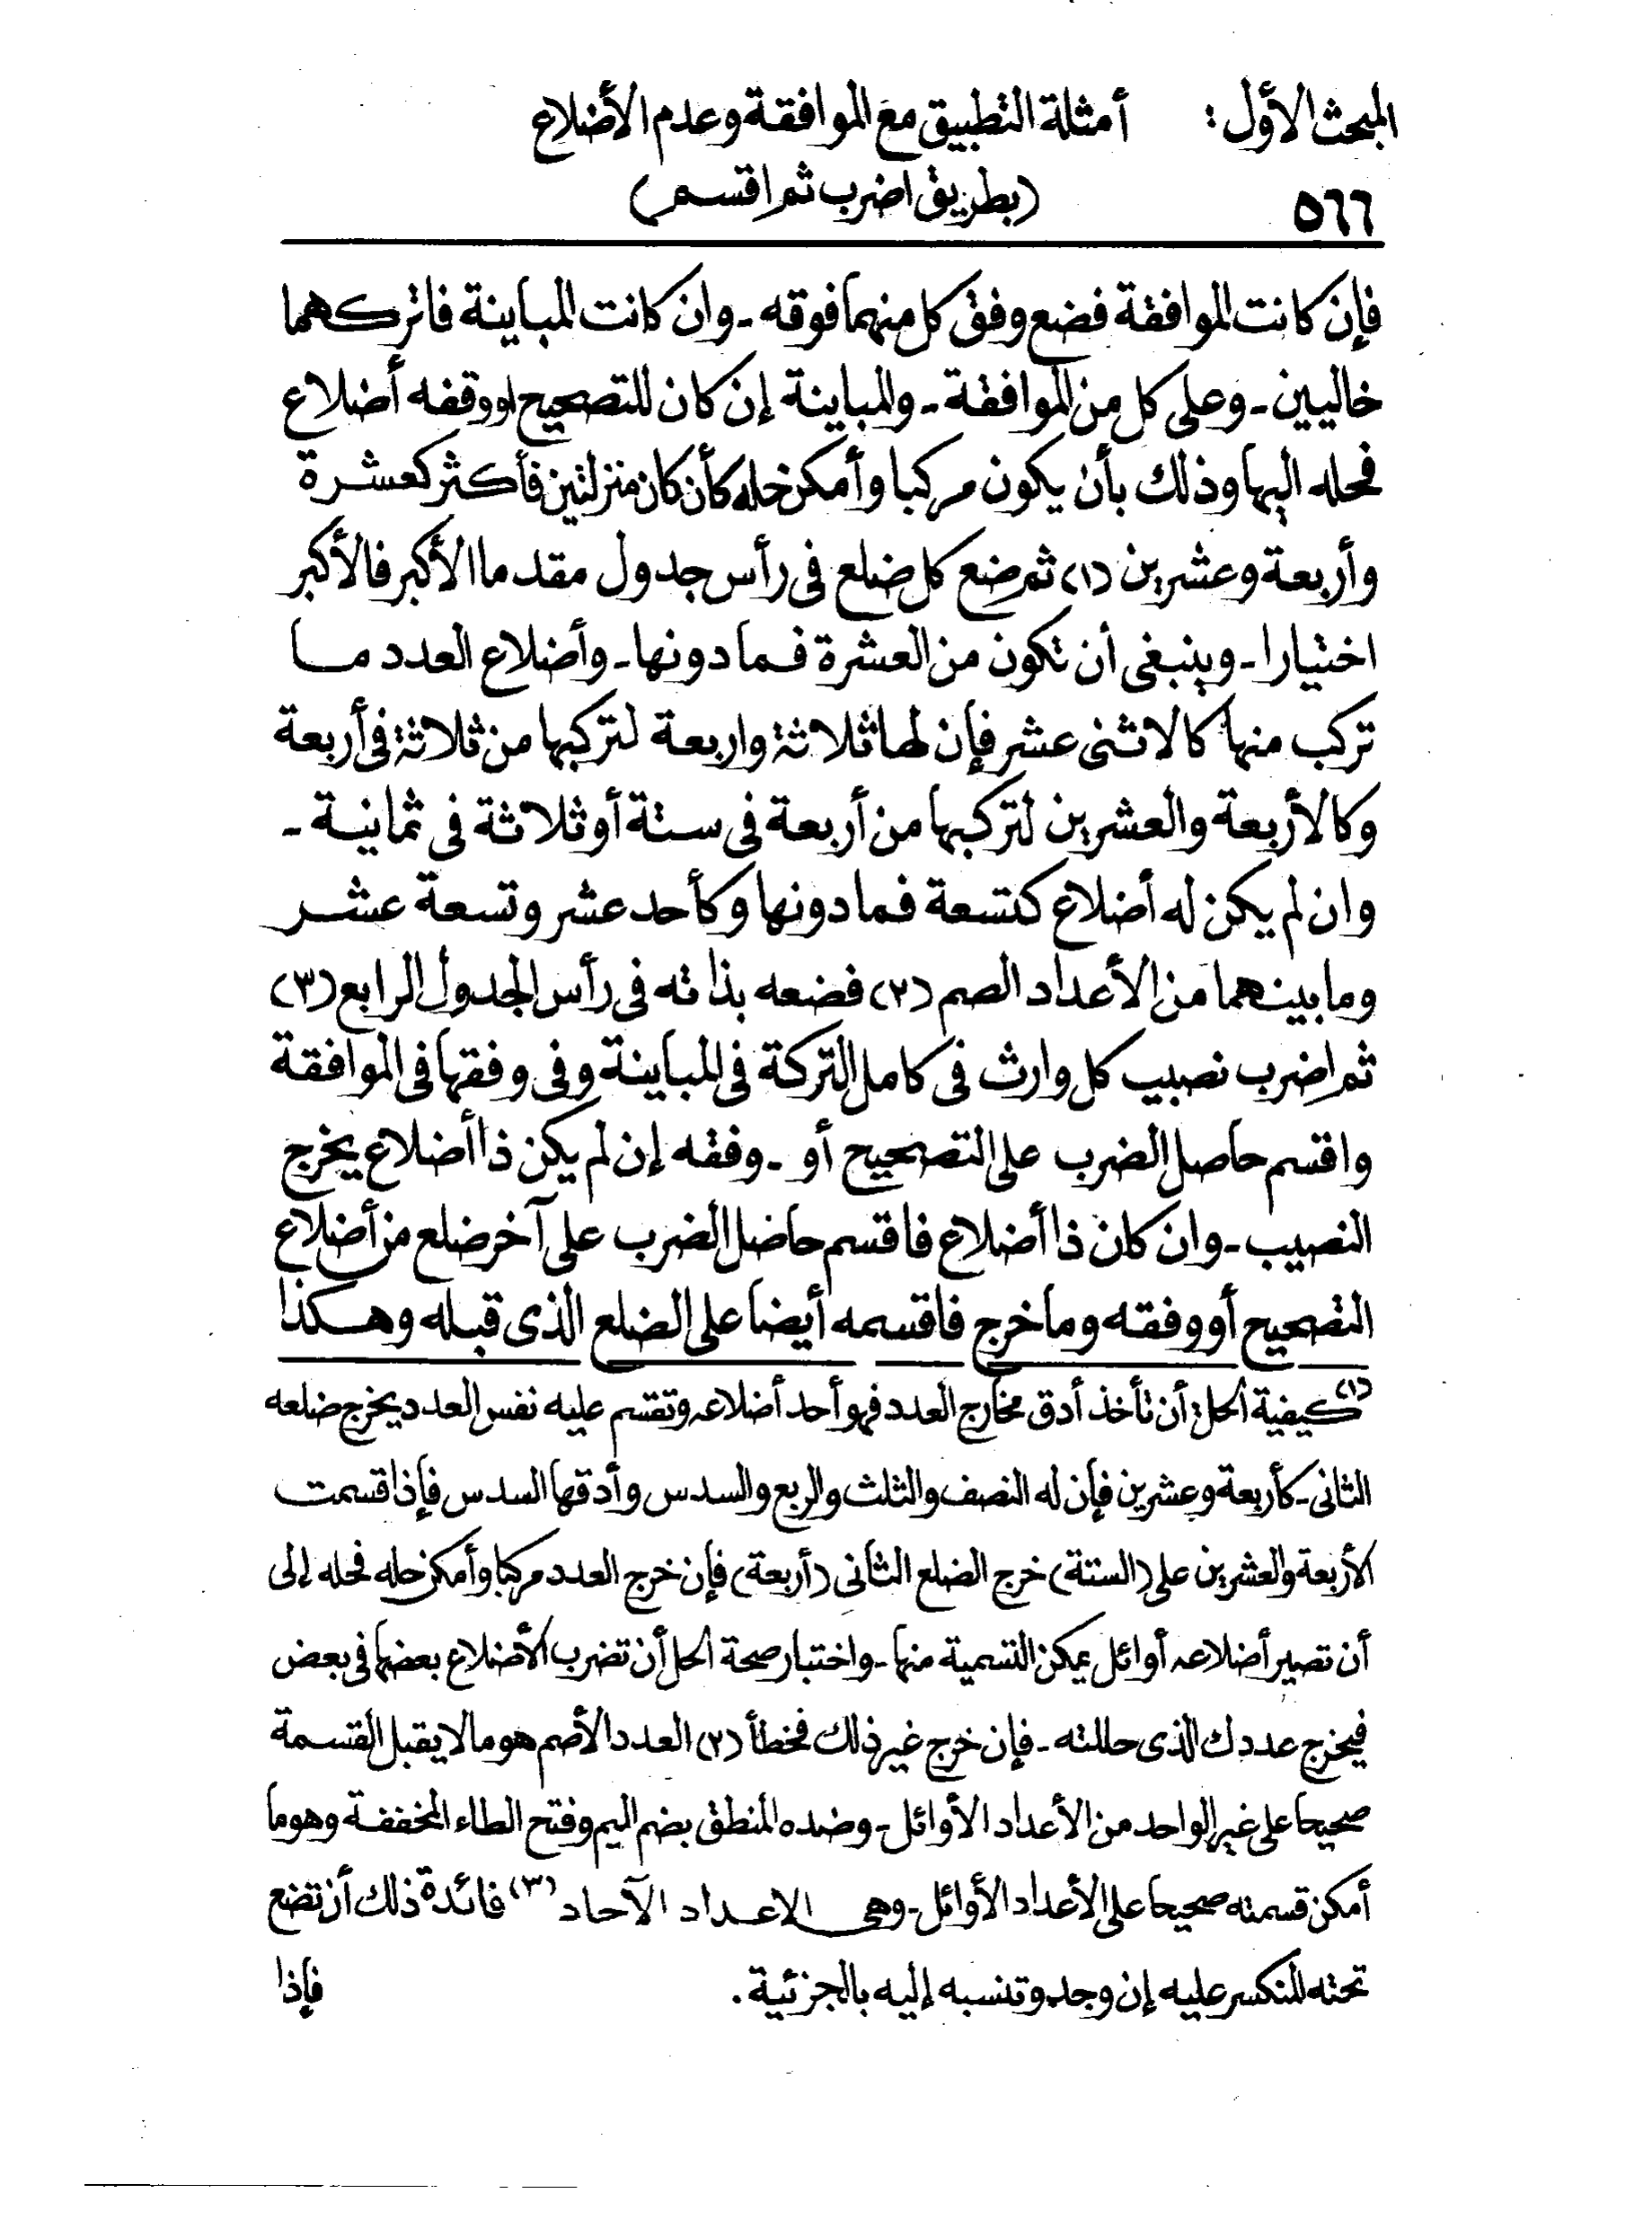 المبحث الأول : أمثلة التطبيق مع الموافقة وعدم الأضلاع
٥٦٦ (بطريق اضرب ثم اقسم)
فإن كانت الموافقة فضع وفق كل منهما فوقه - وان كانت المباينة فاتركهما
خاليين - وعلى كل من الموافقة - والمباينة إن كان للتصحيح او وقفه أضلاع
فحله اليها وذلك بأن يكون مركبا وأمكن حله كأن كان منزلتين فأكثر كعشرة
وأربعة وعشرين (١) ثم ضع كل ضلع فى رأس جدول مقدما الأكبر فالأكبر
اختيارا - وينبغى أن تكون من العشرة فما دونها - وأضلاع العدد ما
تركب منها كالاثنى عشر فإن لها ثلاثة واربعة لتركبها من ثلاثة فى أربعة
وكالأربعة والعشرين لتركبها من أربعة فى ستة أو ثلاثة فى ثمانية -
وان لم يكن له أضلاع كتسعة فما دونها وكأحد عشر وتسعة عشر
وما بينهما من الأعداد الصم (٢) فضعه بذاته فى رأس الجدول الرابع (٣)
ثم اضرب نصيب كل وارث فى كامل التركة فى المباينة وفى وفقها فى الموافقة
واقسم حاصل الضرب على التصحيح أو - وفقه إن لم يكن ذا أضلاع يخرج
النصيب - وان كان ذا أضلاع فاقسم حاضل الضرب على آخر ضلع من أضلاع
التصحيح أو وفقه وما خرج فاقسمه أيضا على الضلع الذى قبله وهكذا
(١) كيفية الحل: أن تأخذ أدق مخارج العدد فهو أحد أضلاعه وتقسم عليه نفس العدد يخرج ضلعه
الثانى - كأربعة وعشرين فإن له النصف والثلث والربع والسدس وأدقها السدس فإذا قسمت
الأربعة والعشرين على (الستة) خرج الضلع الثانى (أربعة) فإن خرج العدد مركبا وأمكن حله فحله إلى
أن تصير أضلاعه أوائل يمكن التسمية منها - واختبار صحة الحل أن تضرب الأضلاع بعضها فى بعض
فيخرج عددك الذى حللته - فإن خرج غير ذلك فخطأ (٢) العدد الأصم هو ما لا يقبل القسمة
صحيحا على غير الواحد من الأعداد الأوائل - وضده المنطق بضم الميم وفتح الطاء المخففة وهو ما
أمكن قسمته صحيحا على الأعداد الأوائل - وهى الاعداد الآحاد (٣) فائدة ذلك أن تضع
تحته المنكسر عليه إن وجد وتنسبه إليه بالجزئية . فإذا